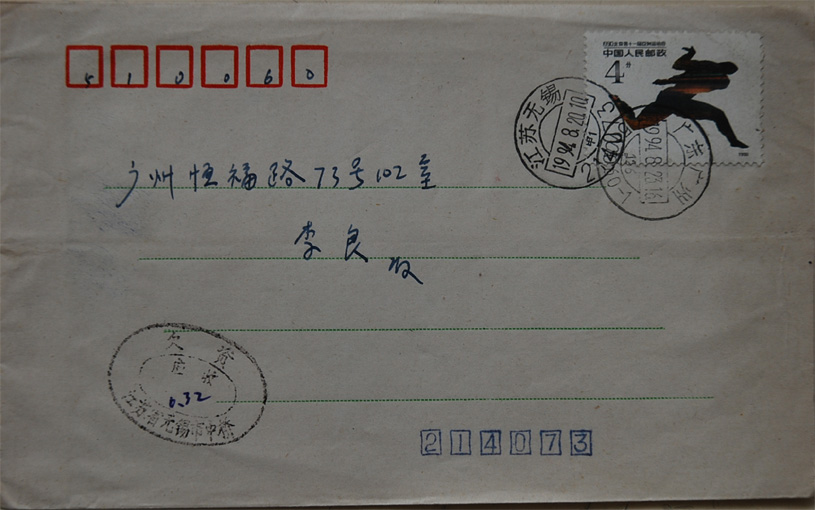 510060
中国人民邮政
4分
江苏无锡
1994.8.20.10
214073
广东广州
1994.8.23.16
广州恒福路73号102室
李良收
欠资
应收
0.32
江苏省无锡市中桥
214073